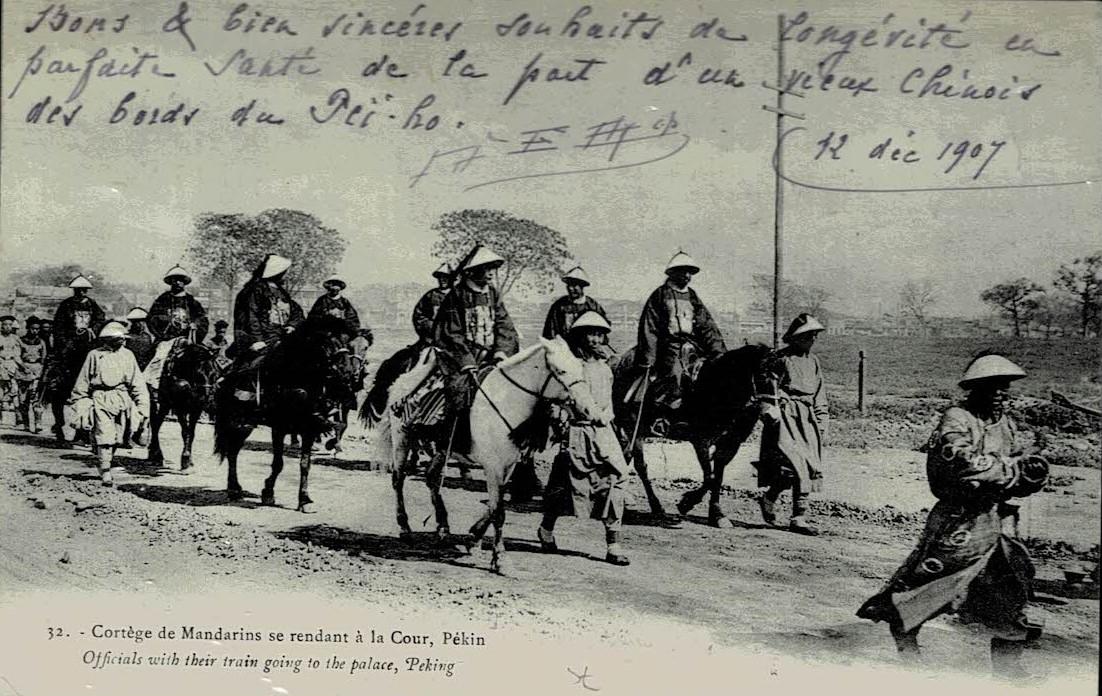 Bons & bien sincéres souhaits de Longévité en
parfaite Santé de la part d'un vieux Chinois
des bords du Peï-ho.
12 déc 1907
32. - Cortège de Mandarins se rendant à la Cour, Pékin
Officials with their train going to the palace, Peking